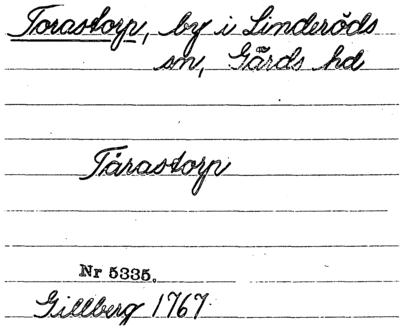 Torastorp, by i Linderöds
sn, Gärds hd
Tårastorp
Nr 5335.
Gillberg 1767